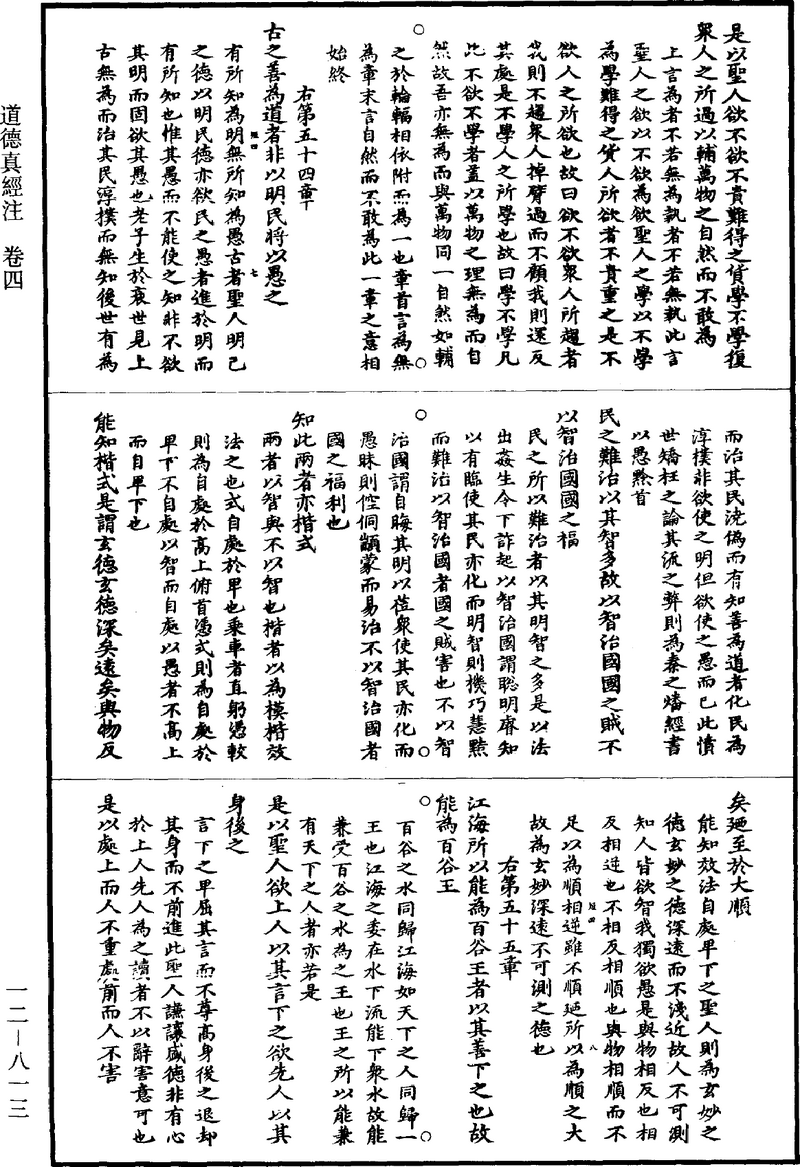 是以聖人欲不欲不貴難得之貨學不學復
眾人之所過以輔萬物之自然而不敢為
上言為者不若無為執者不若無執此言
聖人之欲以不欲為欲聖人之學以不學
為學難得之貨人所欲者不貴重之是不
欲人之所欲也故曰欲不欲眾人所趨者
我則不趨眾人掉臂過而不顧我則還反
其處是不學人之所學也故曰學不學凡
此不欲不學者蓋以萬物之理無為而自
然故吾亦無為而與萬物同一自然如輔
之於輪輻相依附而為一也章首言為無
為章末言自然而不敢為此一章之意相
始終
右第五十四章
古之善為道者非以明民將以愚之
有所知為明無所知為愚古者聖人明己
之德以明民德亦欲民之愚者進於明而
有所知也惟其愚而不能使之知非不欲
其明而固欲其愚也老子生於衰世見上
古無為而治其民淳樸而無知後世有為
而治其民澆偽而有知善為道者化民為
淳樸非欲使之明但欲使之愚而已此憤
世矯枉之論其流之弊則為秦之燔經書
以愚黔首
民之難治以其智多故以智治國國之賊不
以智治國國之福
民之所以難治者以其明智之多是以法
出姦生令下詐起以智治國謂聰明睿知
以有臨使其民亦化而明智則機巧慧黠
而難治以智治國者國之賊害也不以智
治國謂自晦其明以莅眾使其民亦化而
愚昧則倥侗顓蒙而易治不以智治國者
國之福利也
知此兩者亦楷式
兩者以智與不以智也楷者以為模楷效
法之也式自處於卑也乘車者直躬憑較
則為自處於高上俯首憑式則為自處於
卑下不自處以智而自處以愚者不高上
而自卑下也
能知楷式是謂玄德玄德深矣遠矣與物反
矣迺至於大順
能知效法自處卑下之聖人則為玄妙之
德玄妙之德深遠而不淺近故人不可測
知人皆欲智我獨欲愚是與物相反也相
反相逆也不相反相順也與物相順而不
足以為順相逆雖不順迺所以為順之大
故為玄妙深遠不可測之德也
右第五十五章
江海所以能為百谷王者以其善下之也故
能為百谷王
百谷之水同歸江海如天下之人同歸一
王也江海之委在水下流能下眾水故能
兼受百谷之水為之王也王之所以能兼
有天下之人者亦若是
是以聖人欲上人以其言下之欲先人以其
身後之
言下之卑屈其言而不尊高身後之退却
其身而不前進此聖人謙讓盛德非有心
於上人先人為之讀者不以辭害意可也
是以處上而人不重處前而人不害
道德真經注 卷四
一二—八一三